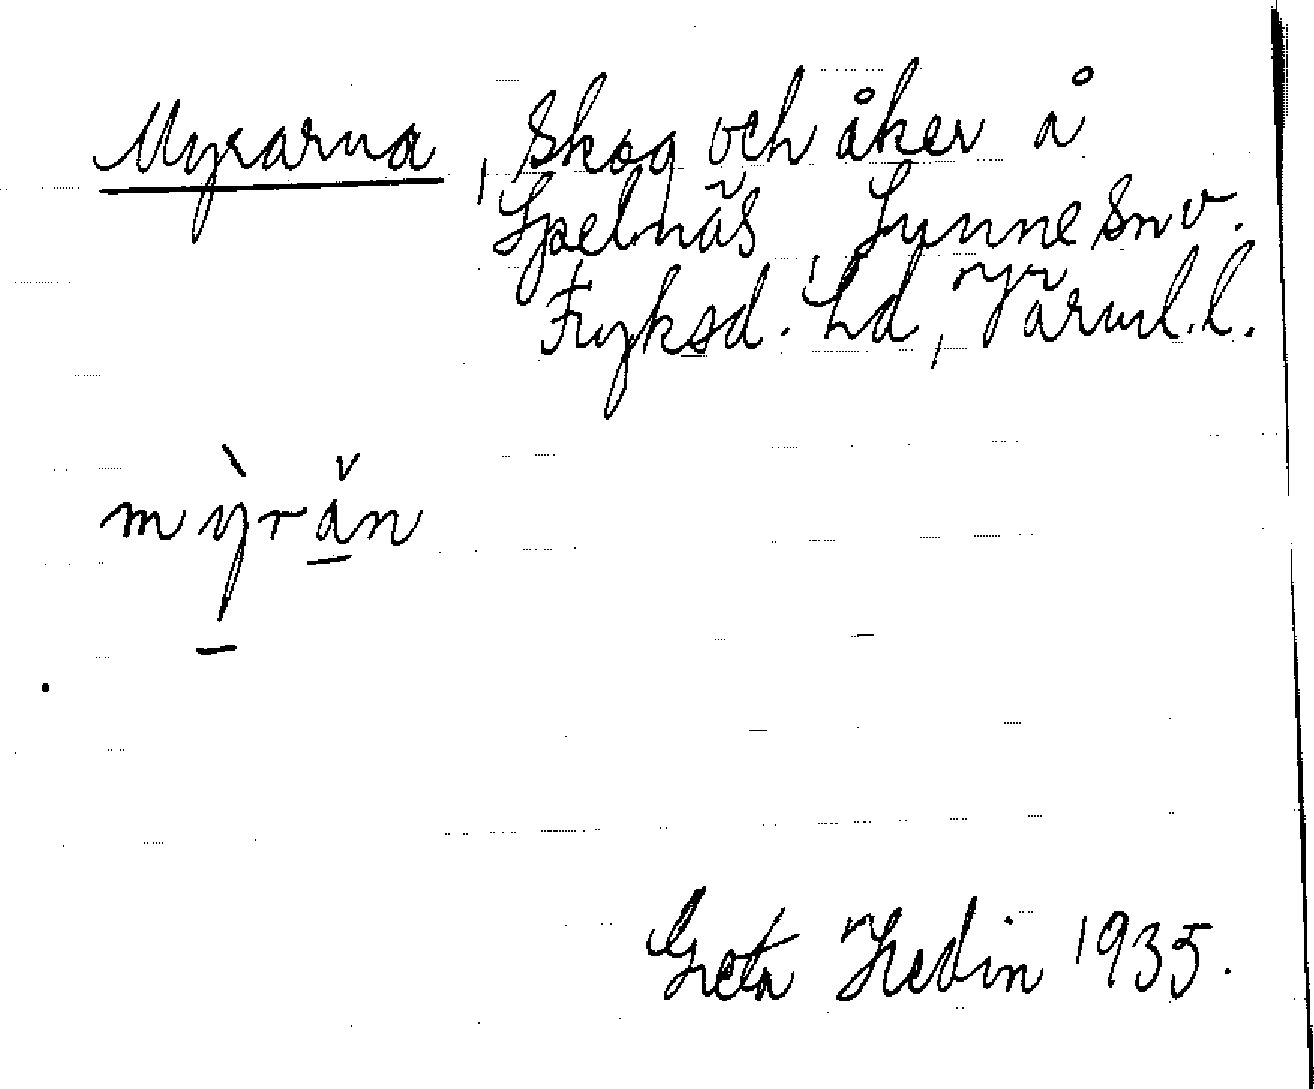 Myrarna, Skog och åker å
Spelnäs, Sunne snv.
Fryksd. hd, Värml. l.
mỳrǎn
Greta Hedin 1935.